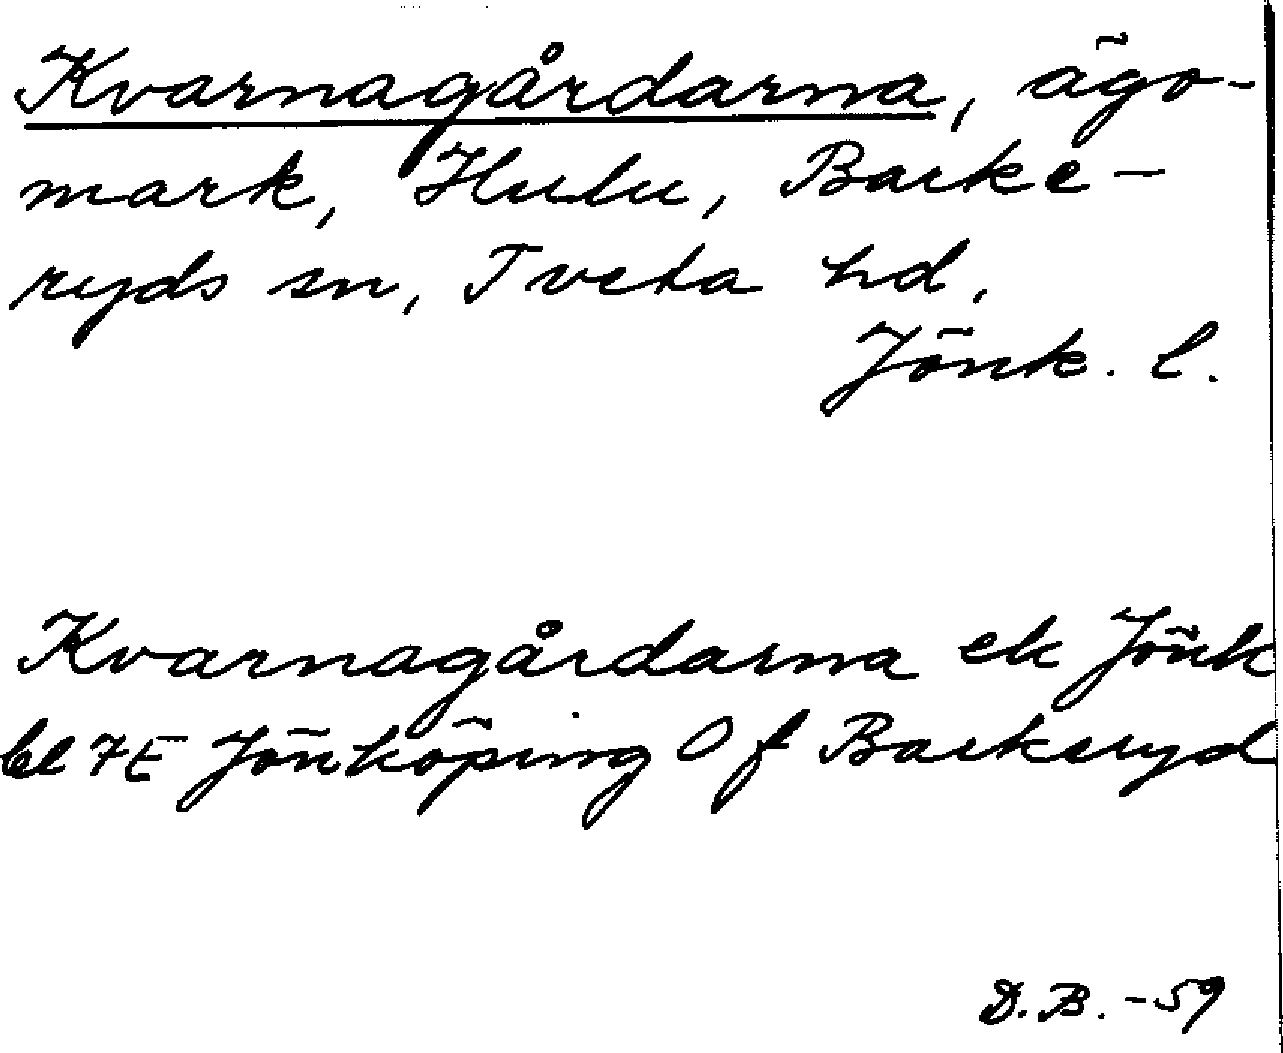 Kvarnagårdarna, ägo-
mark, Hulu, Barke-
ryds sn, Tveta hd,
Jönk. l.
Kvarnagårdarna ek Jönk
bl 7E Jönköping O f Barkeryd
D.B. -59